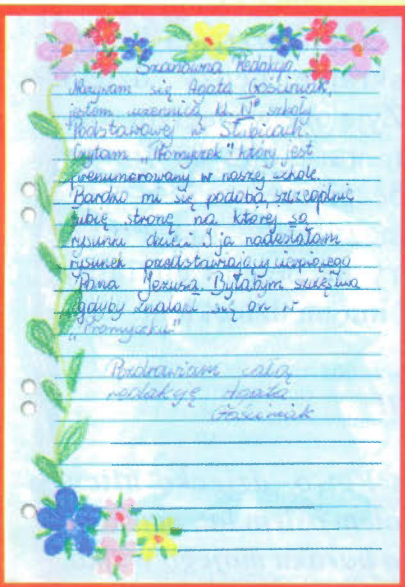 Szanowna Redakcjo.
Nazywam się Agata Gościniak,
jestem uczennicą kl. IVa szkoły
Podstawowej w Słubicach.
Czytam "Promyczek" który jest
prenumerowany w naszej szkole.
Bardzo mi się podoba, szczególnie
lubię stronę na której są
rysunki dzieci. I ja nadesłałam
rysunek przedstawiający cierpiącego
Pana Jezusa. Byłabym szczęśliwa
gdyby znalazł się on w
"Promyczku"
Pozdrawiam całą
redakcję Agata
Gościniak